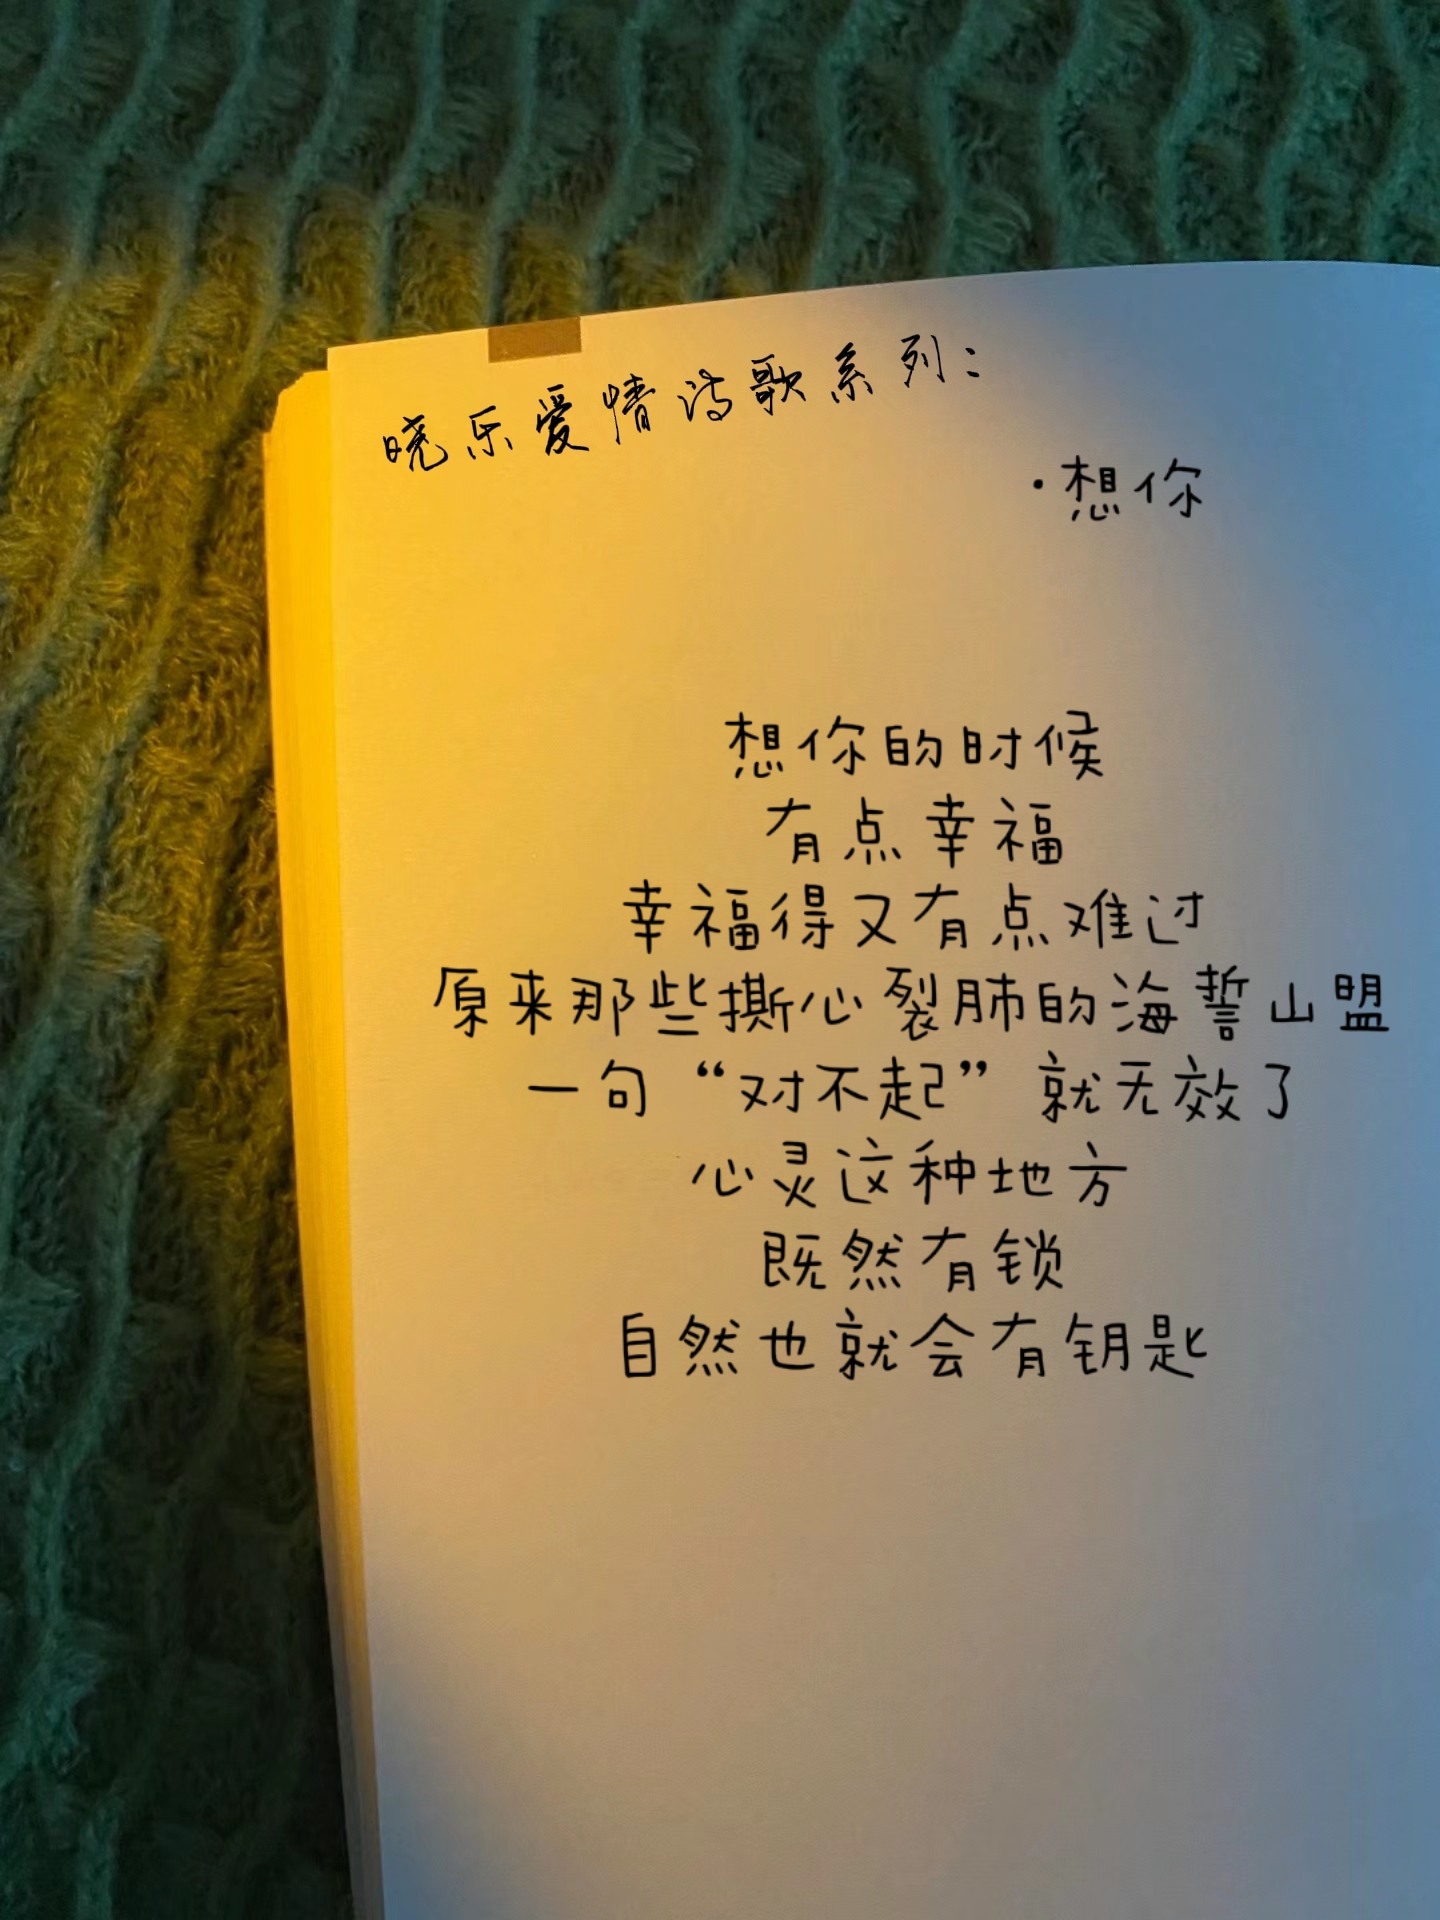 晓乐爱情诗歌系列：
·想你
想你的时候
有点幸福
幸福得又有点难过
原来那些撕心裂肺的海誓山盟
一句“对不起”就无效了
心灵这种地方
既然有锁
自然也就会有钥匙